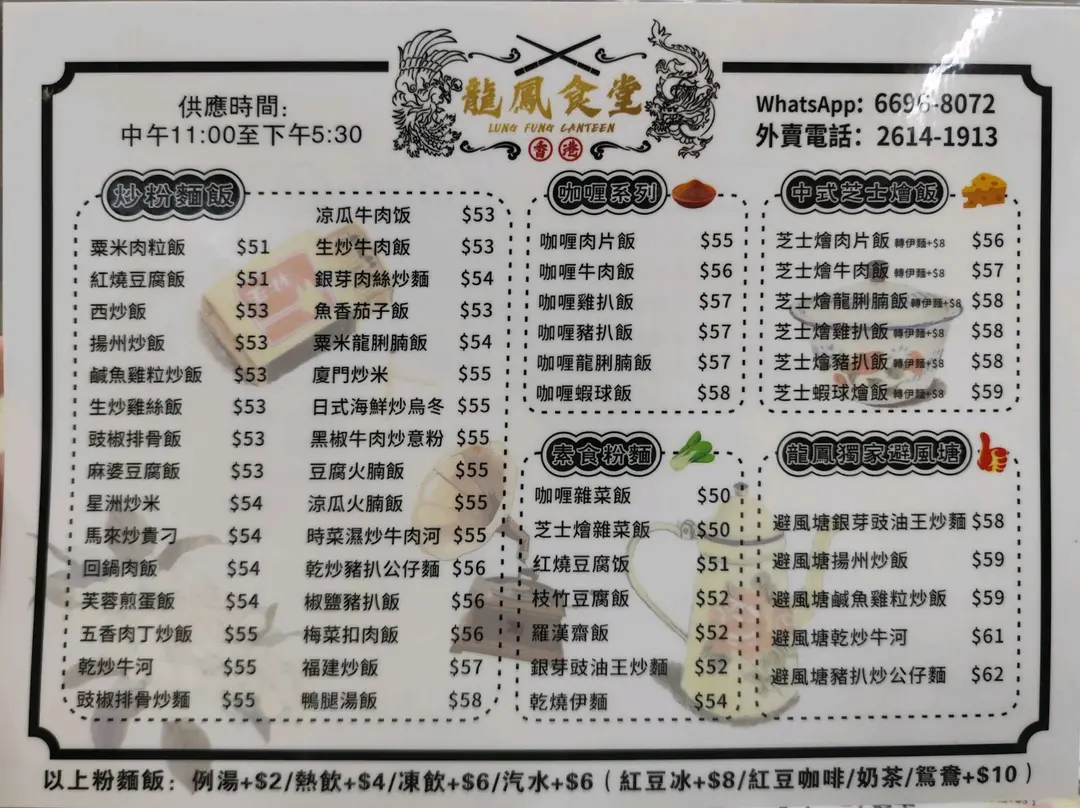 龍鳳食堂
LUNG FUNG CANTEEN
香港
供應時間:
中午11:00至下午5:30
WhatsApp: 6696-8072
外賣電話: 2614-1913
炒粉麵飯
粟米肉粒飯 $51
紅燒豆腐飯 $51
西炒飯 $53
揚州炒飯 $53
鹹魚雞粒炒飯 $53
生炒雞絲飯 $53
豉椒排骨飯 $53
麻婆豆腐飯 $53
星洲炒米 $54
馬來炒貴刁 $54
回鍋肉飯 $54
芙蓉煎蛋飯 $54
五香肉丁炒飯 $55
乾炒牛河 $55
豉椒排骨炒麵 $55
凉瓜牛肉饭 $53
生炒牛肉飯 $53
銀芽肉絲炒麵 $54
魚香茄子飯 $53
粟米龍脷腩飯 $54
廈門炒米 $55
日式海鮮炒烏冬 $55
黑椒牛肉炒意粉 $55
豆腐火腩飯 $55
涼瓜火腩飯 $55
時菜濕炒牛肉河 $55
乾炒豬扒公仔麵 $56
椒鹽豬扒飯 $56
梅菜扣肉飯 $56
福建炒飯 $57
鴨腿湯飯 $58
咖喱系列
咖喱肉片飯 $55
咖喱牛肉飯 $56
咖喱雞扒飯 $57
咖喱豬扒飯 $57
咖喱龍脷腩飯 $57
咖喱蝦球飯 $58
中式芝士燴飯
芝士燴肉片飯 轉伊麵+$8 $56
芝士燴牛肉飯 轉伊麵+$8 $57
芝士燴龍脷腩飯 轉伊麵+$8 $58
芝士燴雞扒飯 轉伊麵+$8 $58
芝士燴豬扒飯 轉伊麵+$8 $58
芝士蝦球燴飯 轉伊麵+$8 $59
素食粉麵
咖喱雜菜飯 $50
芝士燴雜菜飯 $50
红燒豆腐饭 $51
枝竹豆腐飯 $52
羅漢齋飯 $52
銀芽豉油王炒麵 $52
乾燒伊麵 $54
龍鳳獨家避風塘
避風塘銀芽豉油王炒麵 $58
避風塘揚州炒飯 $59
避風塘鹹魚雞粒炒飯 $59
避風塘乾炒牛河 $61
避風塘豬扒炒公仔麵 $62
以上粉麵飯: 例湯+$2/熱飲+$4/凍飲+$6/汽水+$6 ( 紅豆冰+$8/紅豆咖啡/奶茶/鴛鴦+$10 )